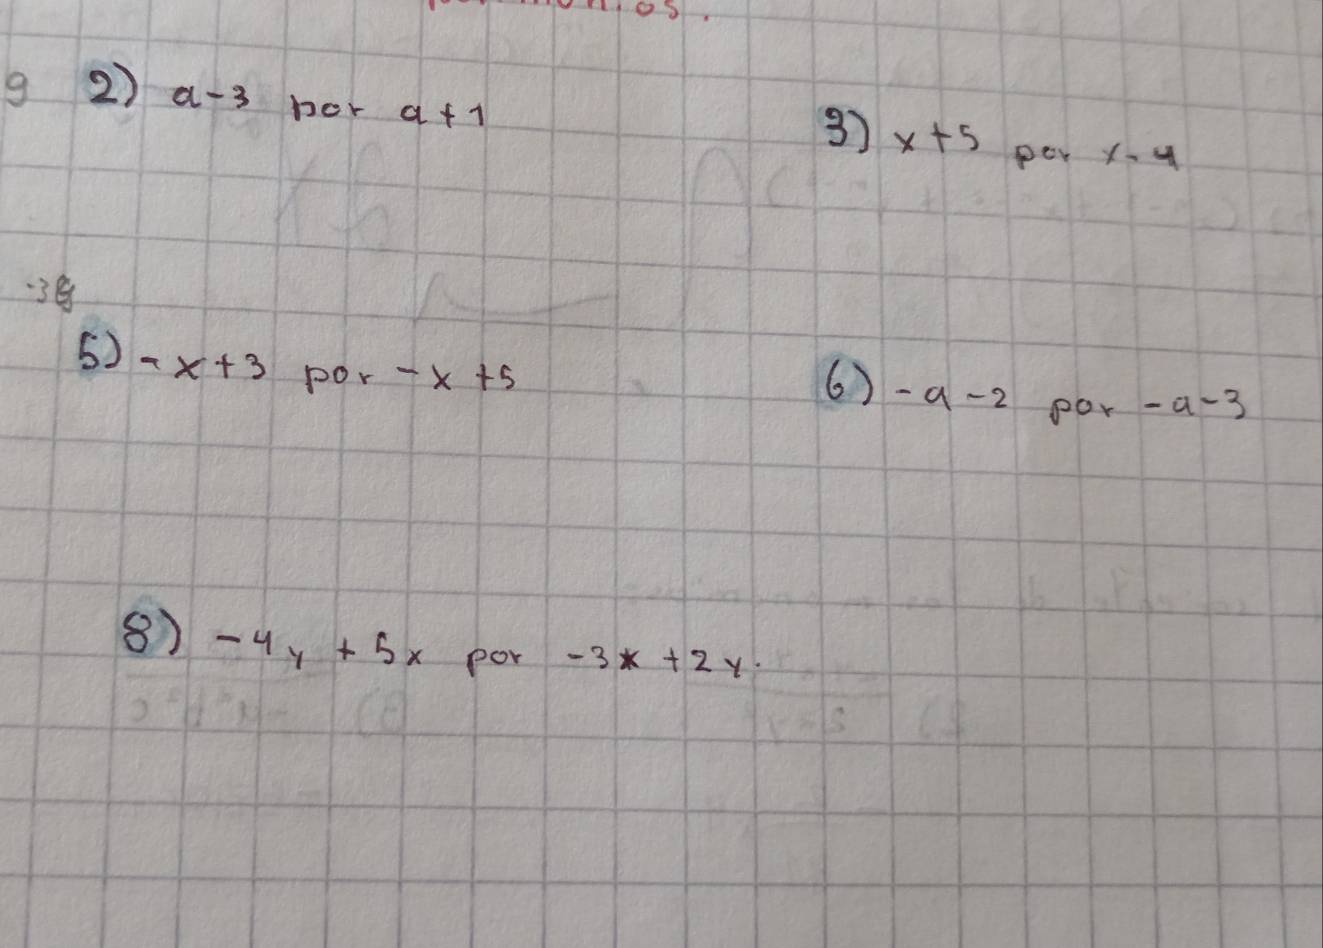 2) a-3 por a+1
3) x+5 por x-4
5) -x+3 por -x+5
6) -a-2 por -a-3
8) -4y + 5x por -3x +2y.